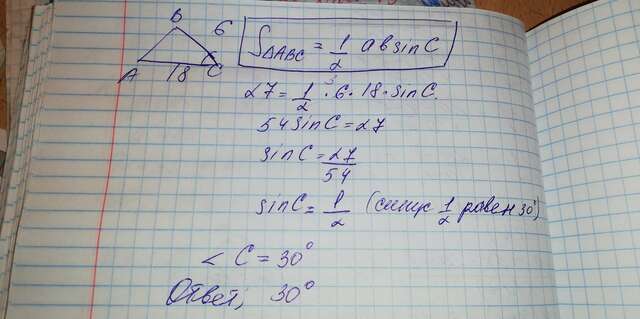 B
6
A 18 C
S△ABC = 1/2 ab sin C
27 = 1/2 · 6 · 18 · sin C.
3
54 sin C = 27
sin C = 27/54
sin C = 1/2 (синус 1/2 равен 30°)
< C = 30°
Ответ; 30°